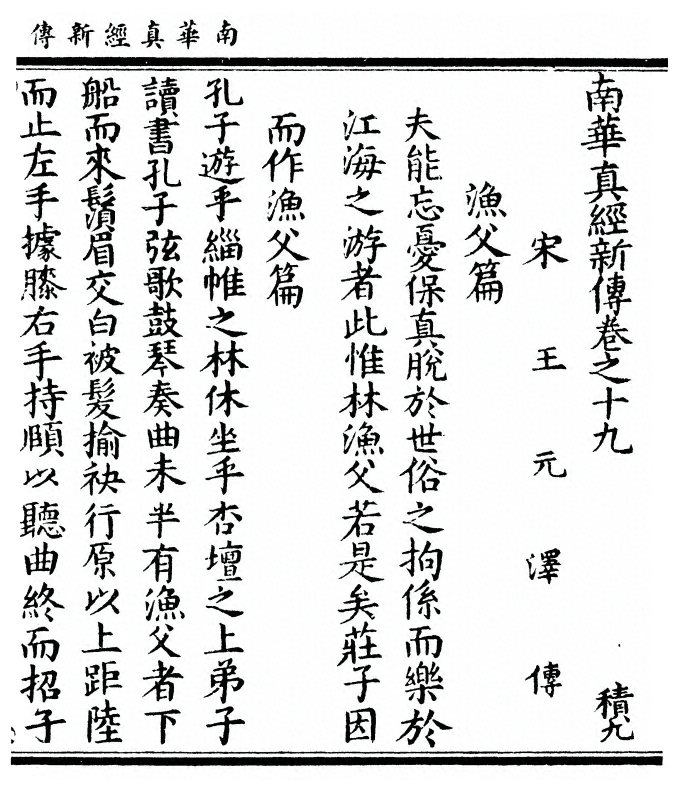 南華真經新傳
南華真經新傳卷之十九
積九
宋王元澤傳
漁父篇
夫能忘憂保真脫於世俗之拘係而樂於
江海之游者此惟林漁父若是矣莊子因
而作漁父篇
孔子遊乎緇帷之林休坐乎杏壇之上弟子
讀書孔子弦歌鼓琴奏曲未半有漁父者下
船而來鬚眉交白被髮揄袂行原以上距陸
而止左手據膝右手持頤以聽曲終而招子